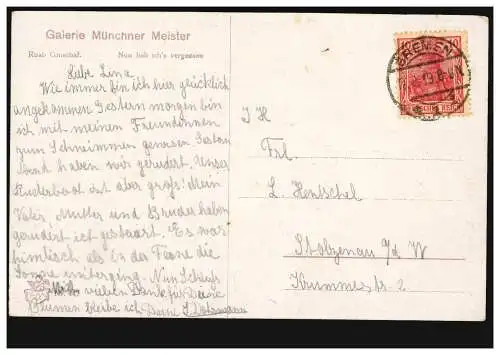 Galerie Münchner Meister
Nun hab ich's vergessen
Liebe Lina
Wie immer bin ich hier glücklich
angekommen Gestern morgen bin
ich mit meinen Freundinnen
zum Schwimmen gewesen Gestern
Abend haben wir gerudert. Unser
Ruderboot ist aber groß! Mein
Vater, Mutter und Bruder haben
gerudert ich gesteuert. Es war
himmlisch als in der Ferne die
Sonne unterging. Nun Schluß
Mit vielen Dank für Deine
Blumen bleibe ich Deine
BREMEN
DEUTSCHES REICH
I H
Frl.
L. Hertschel
Stolzenau a/d W
Krummestr. 2